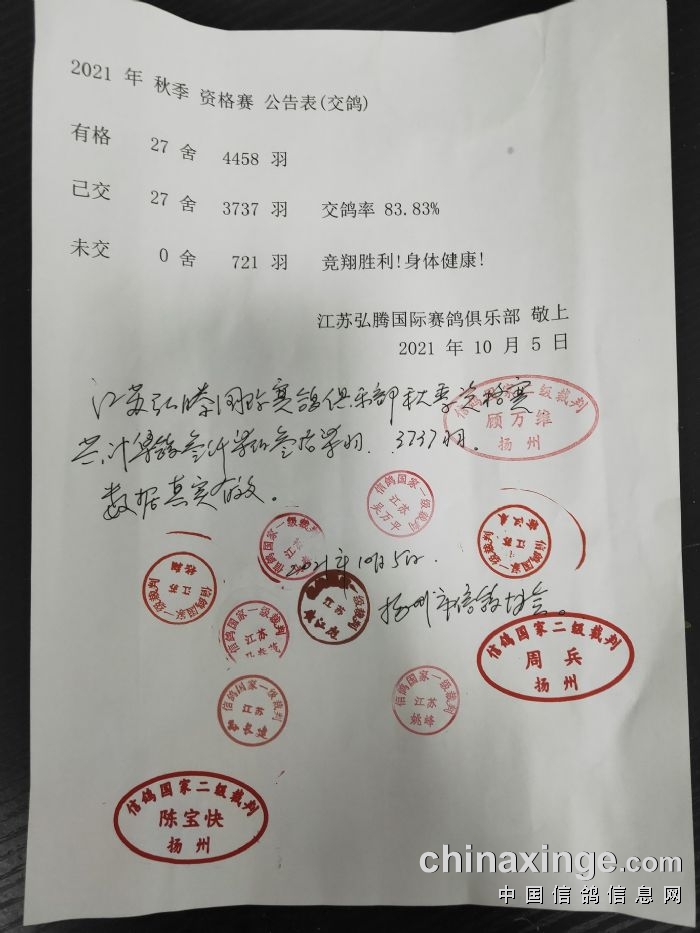 2021 年 秋季 资格赛 公告表(交鸽)
有格 27 舍 4458 羽
已交 27 舍 3737 羽 交鸽率 83.83%
未交 0 舍 721 羽 竞翔胜利!身体健康!
江苏弘腾国际赛鸽俱乐部 敬上
2021 年 10 月 5 日
江苏弘腾国际赛鸽俱乐部秋季资格赛
共计集鸽叁仟柒佰叁拾柒羽. 3737羽.
数据真实有效.
信鸽国家二级裁判
顾万维
扬州
信鸽国家一级裁判
江苏
吴万平
信鸽国家一级裁判
江苏
信鸽国家一级裁判
江苏
2021年10月5日.
信鸽国家一级裁判
江苏
级裁判
江苏
扬州市信鸽协会。
信鸽国家一级裁判
江苏
信鸽国家二级裁判
周兵
扬州
信鸽国家一级裁判
江苏
信鸽国家一级裁判
江苏
姚峰
信鸽国家二级裁判
陈宝快
扬州
chinaxinge.com
中国信鸽信息网